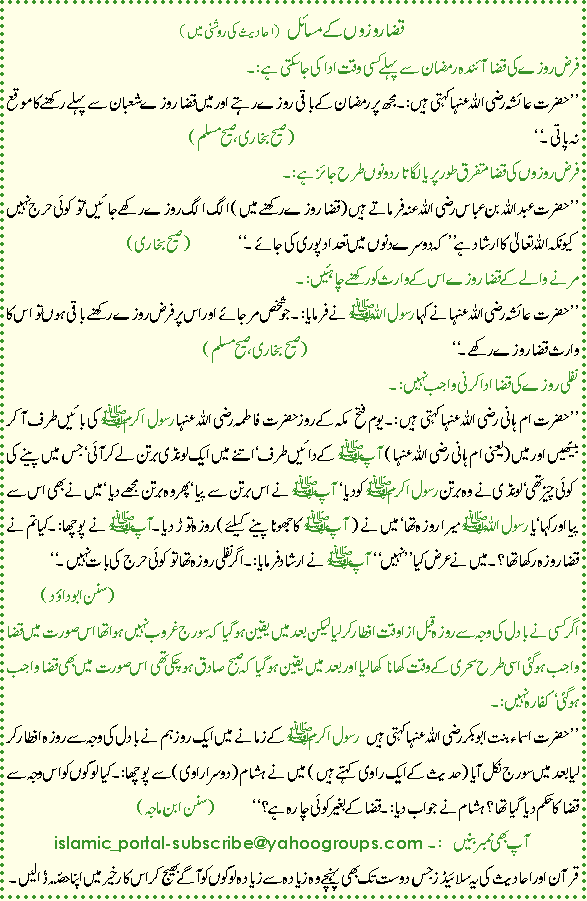 قضا روزوں کے مسائل (احادیث کی روشنی میں)
فرض روزے کی قضا آئندہ رمضان سے پہلے کسی وقت ادا کی جاسکتی ہے:۔
’’حضرت عائشہ رضی اللہ عنہا کہتی ہیں:۔ مجھ پر رمضان کے باقی روزے رہتے اور میں قضا روزے شعبان سے پہلے رکھنے کا موقع
نہ پاتی۔‘‘ (صحیح بخاری، صحیح مسلم)
فرض روزوں کی قضا متفرق طور پر یا لگاتار دونوں طرح جائز ہے:۔
’’حضرت عبداللہ بن عباس رضی اللہ عنہ فرماتے ہیں (قضا روزے رکھنے میں) الگ الگ روزے رکھے جائیں تو کوئی حرج نہیں
کیونکہ اللہ تعالیٰ کا ارشاد ہے’’ کہ دوسرے دنوں میں تعداد پوری کی جائے۔‘‘ (صحیح بخاری)
مرنے والے کے قضا روزے اس کے وارث کو رکھنے چاہئیں:۔
’’حضرت عائشہ رضی اللہ عنہا نے کہا رسول اللہ ﷺ نے فرمایا:۔ جو شخص مر جائے اور اس پر فرض روزے رکھنے باقی ہوں تو اس کا
وارث قضا روزے رکھے۔‘‘ (صحیح بخاری، صحیح مسلم)
نفلی روزے کی قضا ادا کرنی واجب نہیں:۔
’’حضرت ام ہانی رضی اللہ عنہا کہتی ہیں:۔ یوم فتح مکہ کے روز حضرت فاطمہ رضی اللہ عنہا رسول اکرم ﷺ کی بائیں طرف آکر
بیٹھیں اور میں (یعنی ام ہانی رضی اللہ عنہا) آپ ﷺ کے دائیں طرف‘ اتنے میں ایک لونڈی برتن لے کر آئی‘ جس میں پینے کی
کوئی چیز تھی‘ لونڈی نے وہ برتن رسول اکرم ﷺ کو دیا‘ آپ ﷺ نے اس برتن سے پیا‘ پھر وہ برتن مجھے دیا‘ میں نے بھی اس سے
پیا اور کہا‘ یا رسول اللہ ﷺ میرا روزہ تھا‘ میں نے (آپ ﷺ کا جھوٹا پینے کیلئے) روزہ توڑ دیا۔ آپ ﷺ نے پوچھا:۔ کیا تم نے
قضا روزہ رکھا تھا؟۔ میں نے عرض کیا’’نہیں‘‘ آپ ﷺ نے ارشاد فرمایا:۔ اگر نفلی روزہ تھا تو کوئی حرج کی بات نہیں۔‘‘
(سنن ابو داؤد)
اگر کسی نے بادل کی وجہ سے روزہ قبل از وقت افطار کر لیا لیکن بعد میں یقین ہوگیا کہ سورج غروب نہیں ہوا تھا اس صورت میں قضا
واجب ہوگئی اسی طرح سحری کے وقت کھانا کھا لیا اور بعد میں یقین ہوگیا کہ صبح صادق ہو چکی تھی اس صورت میں بھی قضا واجب
ہوگئی‘ کفارہ نہیں:۔
’’حضرت اسماء بنت ابوبکر رضی اللہ عنہا کہتی ہیں رسول اکرم ﷺ کے زمانے میں ایک روز ہم نے بادل کی وجہ سے روزہ افطار کر
لیا بعد میں سورج نکل آیا (حدیث کے ایک راوی کہتے ہیں) میں نے ہشام (دوسرا راوی) سے پوچھا:۔ کیا لوگوں کو اس وجہ سے
قضا کا حکم دیا گیا تھا؟ ہشام نے جواب دیا:۔ قضا کے بغیر کوئی چارہ ہے؟‘‘ (سنن ابن ماجہ)
آپ بھی ممبر بنیں :۔ islamic_portal-subscribe@yahoogroups.com
قرآن اور احادیث کی یہ سلائیڈز جس دوست تک بھی پہنچے وہ زیادہ سے زیادہ لوگوں کو آگے بھیج کر اس کار خیر میں اپنا حصہ ڈالیں۔